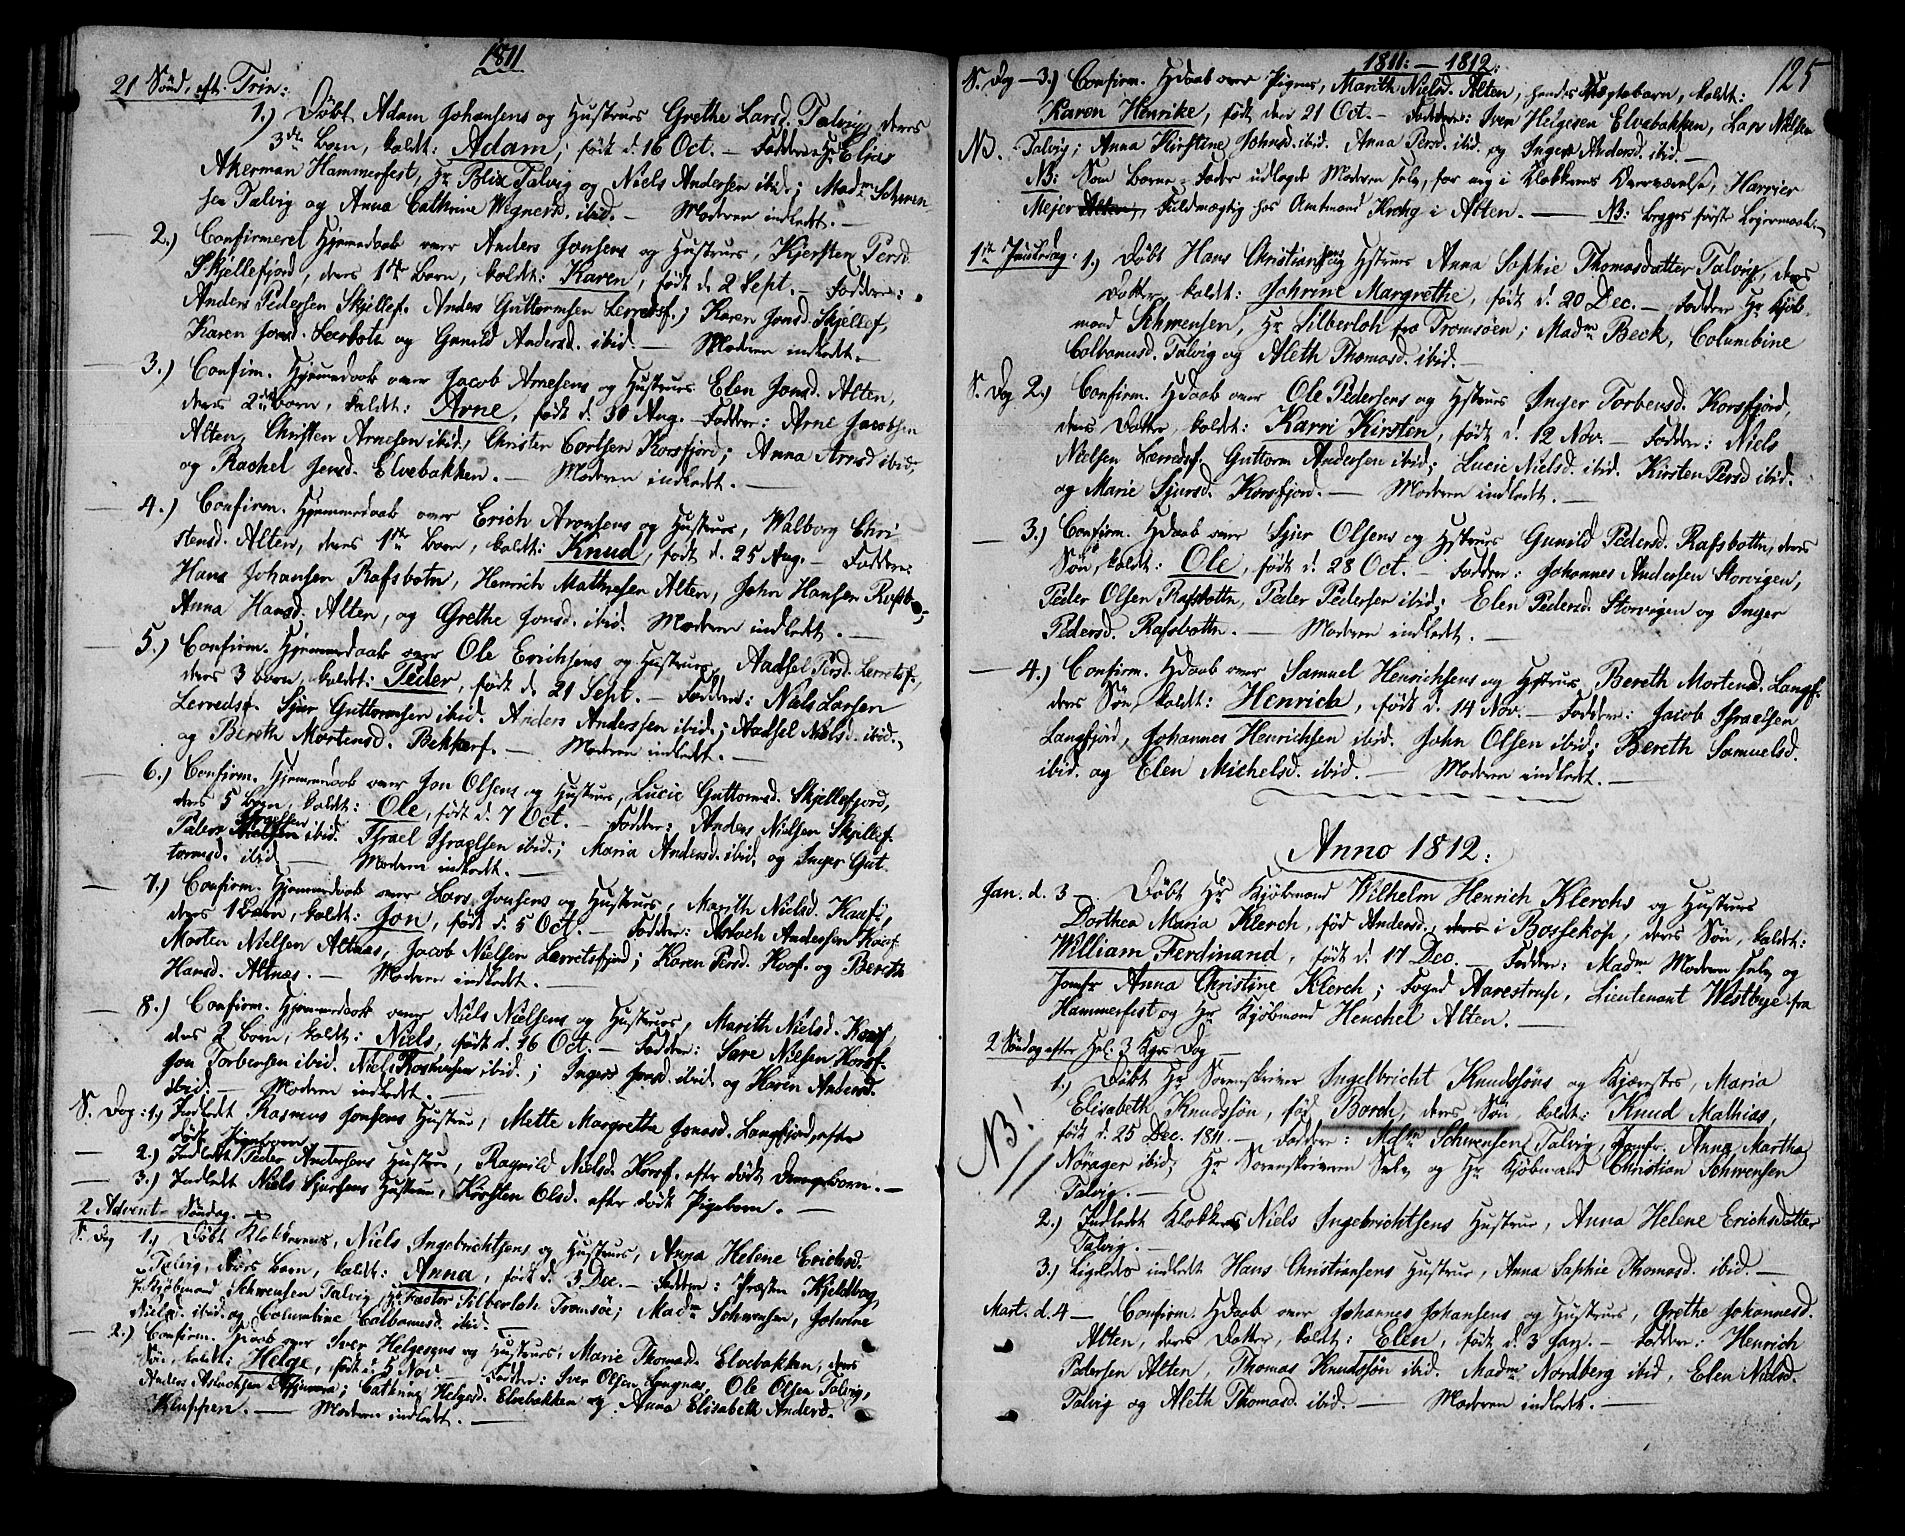 1811
21 Sønd. eft. Trin:
1.) Døbt Adam Johansens og Hustrues Grethe Larsd. Talvig, deres
3die Barn, kaldt: Adam, født d. 16 Oct. – Faddere: Hr Elias
Akerman Hammerfest, Hr Blix Talvig og Niels Andersen ibid; Madm Schwen-
sen Talvig og Anna Cathrine Wegnersd. ibid. – Moderen indledt. –
— 2.) Confirmeret Hjemmedaab over Anders Jonsens og Hustrues, Kjersten Persd.
Skjellefjord, deres 1ste Barn, kaldt: Karen, født d. 2 Sept. – Faddere:
Anders Pedersen Skjellef. Anders Guttormsen Lerredsf.; Karen Jonsd. Skjellef,
Karen Jonsd. og Gunild Andersd. ibid. – Moderen indledt. –
— 3.) Confirm. Hjemmedaab over Jacob Arnesens og Hustrues Elen Jonsd. Alten,
deres 2det Barn, kaldt: Arne, født d. 30 Aug. – Faddere: Arne Jacobsen
Alten, Christen Arnesen ibid., Christen Carlsen Korsfjord; Anna Arnsd ibid.
og Rachel Jensd. Elvebakken. – Moderen indledt. –
— 4.) Confirm. Hjemmedaab over Erich Aronsens og Hustrues, Walborg Chri-
stensd. Alten, deres 1ste Barn, kaldt: Knud, født d. 25 Aug. – Faddere:
Hans Johansen Rafsbotn, Henrich Mathisen Alten, John Hansen Rafsb;
Anna Hansd. Alten, og Grethe Jonsd. ibid. Moderen indledt. –
5.) Confirm. Hjemmedaab over Ole Erichsens og Hustrues, Aadsel Persd. Lerretsf.,
deres 3 Barn, kaldt: Peder, født d. 21 Sept. – Faddere: Niels Larsen
Lerredsf. Sjur Guttormsen ibid. Anders Anderssen ibid.; Aadsel Nielsd. ibid.,
og Bereth Mortensd. Bekkarf. – Moderen indledt. –
— 6.) Confirm. Hjemmedaab over Jon Olsens og Hustrues, Lucie Guttormsd. Skjellefjord,
deres 5 Barn, kaldt: Ole, født d. 7 Oct. – Faddere: Anders Nielsen Skjellef.
Peder Israelsen ibid. Israel Israelsen ibid.; Maria Andersd. ibid. og Inger Gut-
tormsd. ibid. – Moderen indledt. –
— 7.) Confirm. Hjemmedaab over Lars Jonsens og Hustrues, Marith Nielsd. Kaaf,
deres 1 Barn, kaldt: Jon, født d. 5 Oct. – Faddere: Andersen Kaaf.
Morten Nielsen Altnæs, Jacob Nielsen Lerretsfjord; Karen Persd. Kaaf. og Bereth
Hansd. Altnæs. – Moderen indledt. –
— 8.) Confirm. Hjemmedaab over Niels Nielsens og Hustrues, Marith Nielsd. Kaaf,
deres 2 Barn, kaldt: Niels, født d. 16 Oct. – Faddere: Sare Nielsen Korsf.
Jon Torbensen ibid. Niels Rasmusen ibid.; Inger Jonsd. ibid. og Karen Andersd.
ibid. – Moderen indledt. –
S. Dag: 1.) Indledt Rasmus Jonsens Hustrue, Mette Margrethe Jonasd. Langfjord, efter
født Pigebarn. –
— 2.) Indledt Peder Andersens Hustrue, Ragnild Nielsd. Korsf. efter født Drengebarn. –
— 3.) Indledt Niels Sjursens Hustrue, Kirsten Olsd. efter født Pigebarn. –
2 Advent Søndag. –
S. Dag 1.) Døbt Klokkerens, Niels Ingebrichtsens og Hustrues, Anna Helene Erichsd.
Talvig, deres Barn, kaldt: Anna, født d. 3 Dec. – Faddere: Præsten Kjeldberg,
Hr Kjøbmand Schwensen Talvig, Hr Factor Silberloh Tromsøe; Madm Schwensen, Johrine
Nielsd. ibid. og Columbine Colbanusd. ibid. –
— 2.) Confirm. Hdaab over Iver Helgesens og Hustrues, Marie Thomasd. Elvebakken, deres
Søn, kaldt: Helge, født d. 5 Nov. – Faddere: Iver Olsen, Ole Olsen Talvig,
Anders Aslachsen; Cathrine Helgesd. Elvebakken og Anna Elisabeth Andersd.
Kluppen. – Moderen indledt. –
1811: – 1812.
125
S. Dag – 3.) Confirm. Hdaab over Pigens, Marith Nielsd. Alten, hendes Uægtebarn, kaldt:
Karen Henrike, født den 21 Oct. – Faddere: Iver Helgesen Elvebakken, Lars Nielsen
NB. Talvig; Anna Kirstine Johnsd. ibid. Anna Persd. ibid. og Inger Andersd. ibid. –
NB: Som Barne-Fader udlagde Moderen selv, for mig i Klokkerens Overværelse, Harrier
Mejer Alten, Fuldmægtig hos Amtmand Krohg i Alten. – NB: begges første Lejermaal. –
1ste Juuledag: 1.) Døbt Hans Christiansens og Hustrues Anna Sophie Thomasdatter Talvig, deres
Datter, kaldt: Johrine Margrethe, født d. 20 Dec. – Faddere: Hr Kjøb-
mand Schwensen, Hr Silberloh fra Tromsøen; Madm Beck, Columbine
Colbanusd. Talvig og Aleth Thomasd. ibid. –
S. Dag 2.) Confirm. Hdaab over Ole Pedersens og Hstrues Inger Torbensd. Korsfjord,
deres Datter, kaldt: Karri Kirsten, født d. 12 Nov. – Faddere: Niels
Nielsen Lerredsf. Guttorm Andersen ibid; Lucie Nielsd. ibid. Kirsten Persd ibid.
og Marie Sjursd. Korsfjord. – Moderen indledt. –
— 3.) Confirm. Hdaab over Sjur Olsens og Hstrues Gunild Pedersd. Rafsbottn, deres
Søn, kaldt: Ole, født d. 28 Oct. – Faddere: Johannes Andersen Storvigen,
Peder Olsen Rafsbottn, Peder Pedersen ibid; Elen Pedersd. Storvigen og Inger
Pedersd. Rafsbottn. – Moderen indledt. –
— 4.) Confirm. Hdaab over Samuel Henrichsens og Hstrues Bereth Mortensd. Langf.
deres Søn, kaldt: Henrich, født d. 14 Nov. – Faddere: Jacob Israelsen
Langfjord, Johannes Henrichsen ibid. John Olsen ibid; Bereth Samuelsd.
ibid. og Elen Michelsd. ibid. – Moderen indledt. –
Anno 1812:
Jan. d. 3 – Døbt Hr Kjøbmand Wilhelm Henrich Klerchs og Hustrues
Dorthea Maria Klerch, fød Andersd., deres i Bossekop, deres Søn, kaldt:
William Ferdinand, født d. 17 Dec. – Faddere: Madm Moderen selv og
Jomfr Anna Christine Klerch; Foged Aarestrup, Lieutenant Westbye fra
Hammerfest og Hr Kjøbmand Henchel Alten. –
2 Søndag efter Hel. 3 Kgrs Dag –
1.) Døbt Hr Sorenskriver Ingelbricht Knudssøns og Kjærestes, Maria
Elisabeth Knudssøn, fød Borch, deres Søn, kaldt: Knud Mathias,
NB! født d. 25 Dec. 1811. – Faddere: Mdm Schwensen Talvig, Jomfr. Anna Martha
Nørager ibid; Hr Sorenskriveren Selv og Hr Kjøbmand Christian Schwensen
Talvig. –
2.) Indledt Klokker Niels Ingebrichtsens Hustrue, Anna Helene Erichsdatter
Talvig. –
3.) Ligeledes indledt Hans Christiansens Hustrue, Anna Sophie Thomasd. ibid. –
Mart. d. 4 – Confirm. Hdaab over Johannes Johansens og Hustrues, Grethe Johannesd.
Alten, deres Datter, kaldt: Elen, født d. 3 Jan. – Faddere: Henrich
Pedersen Alten, Thomas Knudssøn ibid. Madm Nordberg ibid, Elen Nielsd.
Talvig og Aleth Thomasd. ibid. – Moderen indledt. –